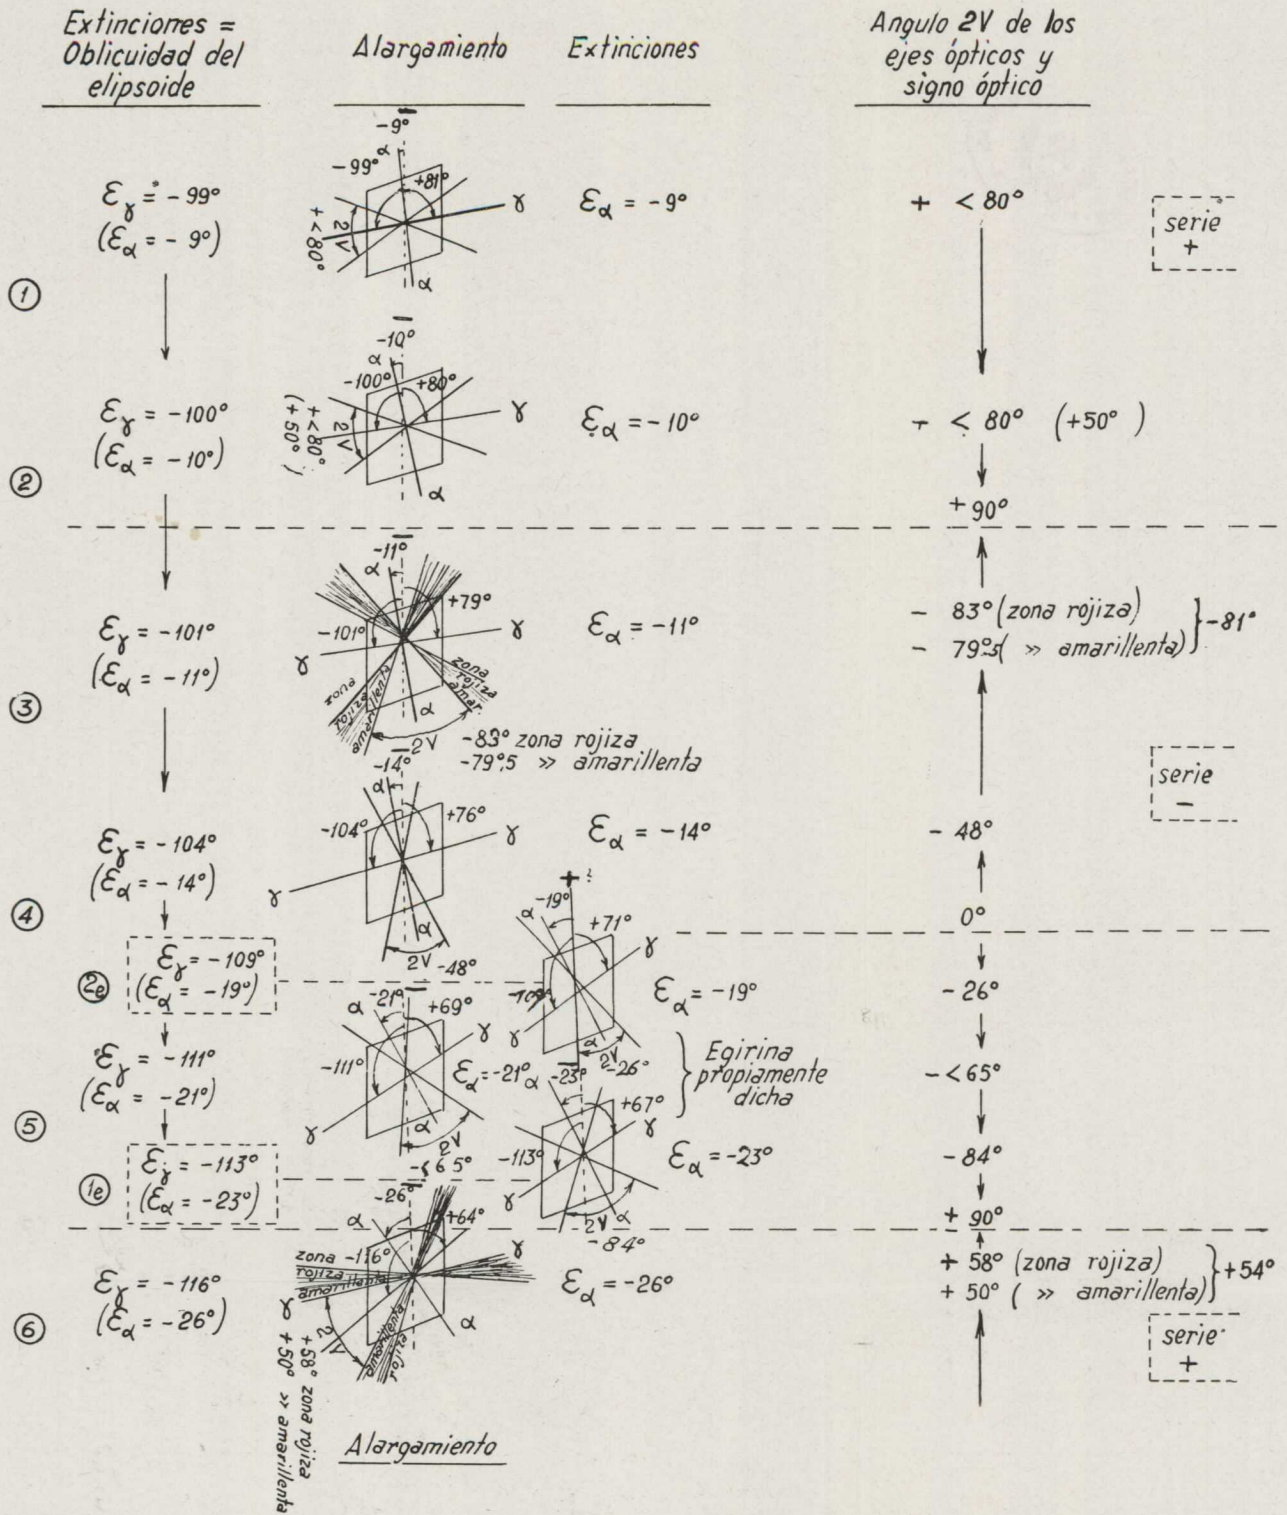 Extinciones =
Oblicuidad del
elipsoide
Alargamiento
Extinciones
Angulo 2V de los
ejes ópticos y
signo óptico
①
Ɛγ = -99°
(Ɛα = -9°)
-9°
α
-99°
+81°
γ
2V
+<80°
α
Ɛα = -9°
+ < 80°
serie
+
②
Ɛγ = -100°
(Ɛα = -10°)
-10°
α
-100°
+80°
γ
2V
+<80°
(+50°)
α
Ɛα = -10°
+ < 80° (+50°)
+90°
③
Ɛγ = -101°
(Ɛα = -11°)
-11°
α
+79°
-101°
γ
γ
zona
rojiza
amarillenta
zona
rojiza
amar.
α
2V
-83° zona rojiza
-79°,5 » amarillenta
Ɛα = -11°
- 83° (zona rojiza)
- 79°,5 ( » amarillenta)
-81°
serie
-
④
Ɛγ = -104°
(Ɛα = -14°)
-14°
α
-104°
+76°
γ
γ
α
2V
-48°
Ɛα = -14°
- 48°
0°
2e
Ɛγ = -109°
(Ɛα = -19°)
+
α
-19°
+71°
γ
-109°
γ
α
2V
-26°
Ɛα = -19°
- 26°
⑤
Ɛγ = -111°
(Ɛα = -21°)
α
-21°
+69°
γ
-111°
γ
α
2V
-<65°
Ɛα = -21°
Egirina
propiamente
dicha
- <65°
1e
Ɛγ = -113°
(Ɛα = -23°)
α
-23°
+67°
γ
-113°
γ
2V
α
-84°
Ɛα = -23°
- 84°
+ 90°
⑥
Ɛγ = -116°
(Ɛα = -26°)
-26°
α
+64°
γ
zona
-116°
rojiza
amarillenta
γ
2V
amarillenta
rojiza
α
+58° zona rojiza
+50° » amarillenta
Ɛα = -26°
+ 58° (zona rojiza)
+ 50° ( » amarillenta)
+54°
serie
+
Alargamiento